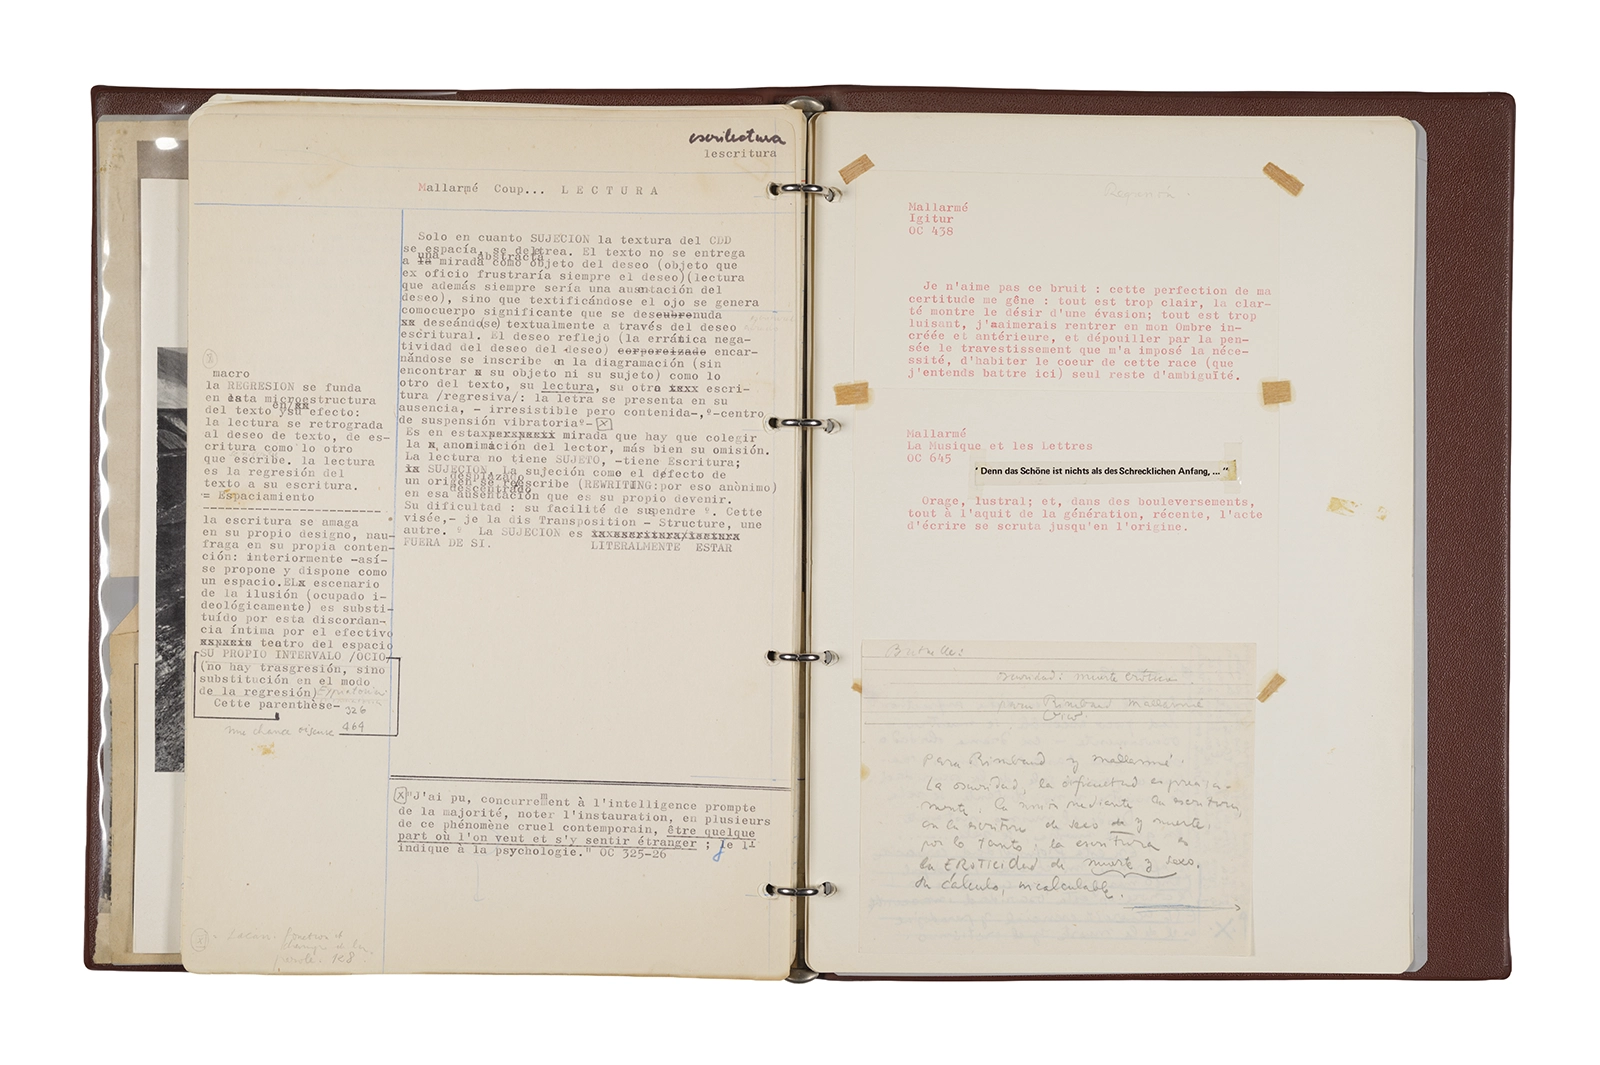 escrilectura
lescritura
Mallarmé Coup... LECTURA
Solo en cuanto SUJECION la textura del CDD
se espacía, se deletrea. El texto no se entrega
una abstracta
a la mirada como objeto del deseo (objeto que
ex oficio frustraría siempre el deseo)(lectura
que además siempre sería una ausentación del
deseo), sino que textificándose el ojo se genera
comocuerpo significante que se deseubrenuda
xx deseándo(se) textualmente a través del deseo
escritural. El deseo reflejo (la errática nega-
tividad del deseo del deseo) corporeizado encar-
nándose se inscribe en la diagramación (sin
encontrar x su objeto ni su sujeto) como lo
otro del texto, su lectura, su otra xxxx escri-
tura /regresiva/: la letra se presenta en su
ausencia, - irresistible pero contenida-,º-centro
de suspensión vibratoriaº- x
Es en esta mirada que hay que colegir
la x anonimación del lector, más bien su omisión.
La lectura no tiene SUJETO, -tiene Escritura;
ix SUJECION. La sujeción como el defecto de
desplazado
un origen se rescribe (REWRITING:por eso anònimo)
descentrado
en esa ausentación que es su propio devenir.
Su dificultad : su facilité de suspendre º. Cette
visée,- je la dis Transposition - Structure, une
autre. º La SUJECION es
FUERA DE SI. LITERALMENTE ESTAR
macro
la REGRESION se funda
en esta microestructura
en/xx
del texto y su efecto:
la lectura se retrograda
al deseo de texto, de es-
critura como lo otro
que escribe. la lectura
es la regresión del
texto a su escritura.
= Espaciamiento
la escritura se amaga
en su propio designo, nau-
fraga en su propia conten-
ción: interiormente -así-
se propone y dispone como
un espacio.ELx escenario
de la ilusión (ocupado i-
deológicamente) es substi-
tuído por esta discordan-
cia íntima por el efectivo
teatro del espacio
SU PROPIO INTERVALO /OCIO
(no hay trasgresión, sino
substitución en el modo
de la regresión)
Cette parenthèse-
326
une chance oiseuse 464
x "J'ai pu, concurremment à l'intelligence prompte
de la majorité, noter l'instauration, en plusieurs
de ce phénomène cruel contemporain, être quelque
part où l'on veut et s'y sentir étranger ; je l'
indique à la psychologie." OC 325-26
Lacan.
parole. 168
Regresión.
Mallarmé
Igitur
OC 438
Je n'aime pas ce bruit : cette perfection de ma
certitude me gêne : tout est trop clair, la clar-
té montre le désir d'une évasion; tout est trop
luisant, j'aaimerais rentrer en mon Ombre in-
créée et antérieure, et dépouiller par la pen-
sée le travestissement que m'a imposé la néce-
ssité, d'habiter le coeur de cette race (que
j'entends battre ici) seul reste d'ambiguïté.
Mallarmé
La Musique et les Lettres
OC 645
" Denn das Schöne ist nichts als des Schrecklichen Anfang, ... "
Orage, lustral; et, dans des bouleversements,
tout à l'aquit de la génération, récente, l'acte
d'écrire se scruta jusqu'en l'origine.
Bataille:
oscuridad: muerte erótica
para Rimbaud Mallarmé
Para Rimbaud y Mallarmé.
La oscuridad, la dificultad es precisa-
mente, la unión mediante la escritura,
en la escritura de sexo de y muerte.
por lo tanto; la escritura es
la EROTICIDAD de muerte y sexo.
Su cálculo, incalculable.